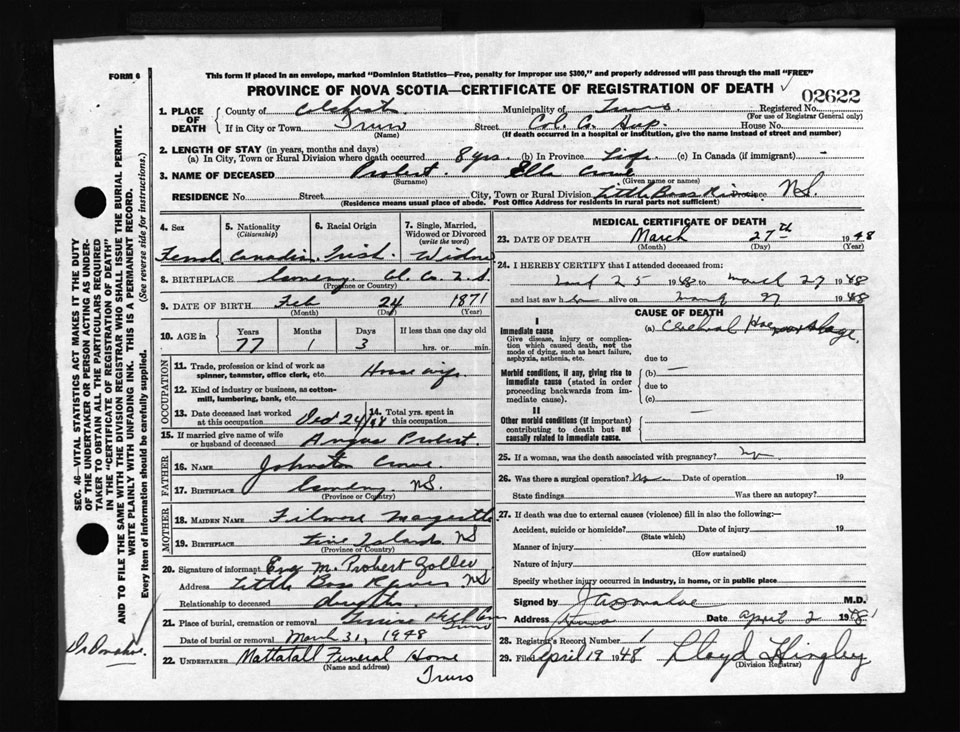 This form if placed in an envelope, marked "Dominion Statistics—Free, penalty for improper use $300," and properly addressed will pass through the mail "FREE"
FORM 6
PROVINCE OF NOVA SCOTIA—CERTIFICATE OF REGISTRATION OF DEATH
02622
1. PLACE OF DEATH County of Colchester Municipality of Truro Registered No.
(For use of Registrar General only)
If in City or Town Truro Street Col. Co. Hosp. House No.
(Name) (If death occurred in a hospital or institution, give the name instead of street and number)
2. LENGTH OF STAY (in years, months and days)
(a) In City, Town or Rural Division where death occurred 8 yrs. (b) In Province Life (c) In Canada (if immigrant) -
3. NAME OF DECEASED Probert. Ella Crowe
(Surname) (Given name or names)
RESIDENCE No. Street City, Town or Rural Division Little Bass River Province N.S.
(Residence means usual place of abode. Post Office Address for residents in rural parts not sufficient)
4. Sex 5. Nationality (Citizenship) 6. Racial Origin 7. Single, Married, Widowed or Divorced (write the word)
Female Canadian Irish. Widow
8. BIRTHPLACE Col. Co. N.S.
(Province or Country)
9. DATE OF BIRTH Feb 24 1871
(Month) (Day) (Year)
10. AGE in Years Months Days If less than one day old
77 1 3 hrs. or min.
OCCUPATION
11. Trade, profession or kind of work as spinner, teamster, office clerk, etc. Housewife
12. Kind of industry or business, as cotton-mill, lumbering, bank, etc.
13. Date deceased last worked at this occupation 14. Total yrs. spent in this occupation
15. If married give name of wife or husband of deceased Angus Probert.
FATHER
16. NAME Johnston Crowe.
17. BIRTHPLACE N.S.
(Province or Country)
MOTHER
18. MAIDEN NAME Filmore
19. BIRTHPLACE Five Islands NS
(Province or Country)
20. Signature of informant M. Probert
Address Little Bass River NS
Relationship to deceased daughter.
21. Place of burial, cremation or removal Truro
Date of burial or removal March 31, 1948
22. UNDERTAKER Mattatall Funeral Home
(Name and address)
Truro
MEDICAL CERTIFICATE OF DEATH
23. DATE OF DEATH March 27th 1948
(Month) (Day) (Year)
24. I HEREBY CERTIFY that I attended deceased from
March 25 1948 to March 27 1948
and last saw her alive on March 27 1948
CAUSE OF DEATH
I
Immediate cause (a) Cerebral Haemorrhage.
Give disease, injury or complication which caused death, not the mode of dying, such as heart failure, asphyxia, asthenia, etc.
due to
Morbid conditions, if any, giving rise to immediate cause (stated in order proceeding backwards from immediate cause).
(b) —
due to
(c)
II
Other morbid conditions (if important) contributing to death but not causally related to immediate cause.
25. If a woman, was the death associated with pregnancy? No
26. Was there a surgical operation? No Date of operation 19
State findings Was there an autopsy?
27. If death was due to external causes (violence) fill in also the following:—
Accident, suicide or homicide? Date of injury 19
(State which)
Manner of injury
(How sustained)
Nature of injury
Specify whether injury occurred in industry, in home, or in public place
Signed by M.D.
Address Truro Date April 2 1948
28. Registrar's Record Number 1
29. Filed April 19 1948 Lloyd Hingley
(Division Registrar)
SEC. 46—VITAL STATISTICS ACT MAKES IT THE DUTY OF THE UNDERTAKER OR PERSON ACTING AS UNDERTAKER TO OBTAIN ALL THE PARTICULARS REQUIRED IN THE "CERTIFICATE OF REGISTRATION OF DEATH" AND TO FILE THE SAME WITH THE DIVISION REGISTRAR WHO SHALL ISSUE THE BURIAL PERMIT.
WRITE PLAINLY WITH UNFADING INK. THIS IS A PERMANENT RECORD.
Every item of information should be carefully supplied. (See reverse side for instructions.)
Dr Donahoe.